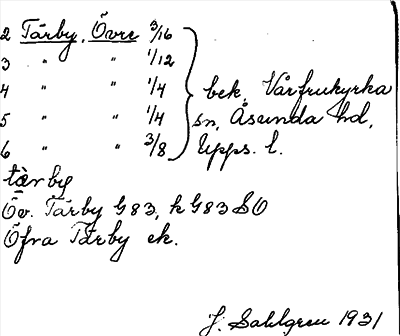 2 Tärby, Övre 3/16
3 " " 1/12
4 " " 1/4
5 " " 1/4
6 " " 3/8
bek. Vårfrukyrka
sn, Åsunda hd,
Upps. l.
tærby
Öv. Tärby G83, k G83 SO
Öfra Tärby ek.
J. Sahlgren 1931